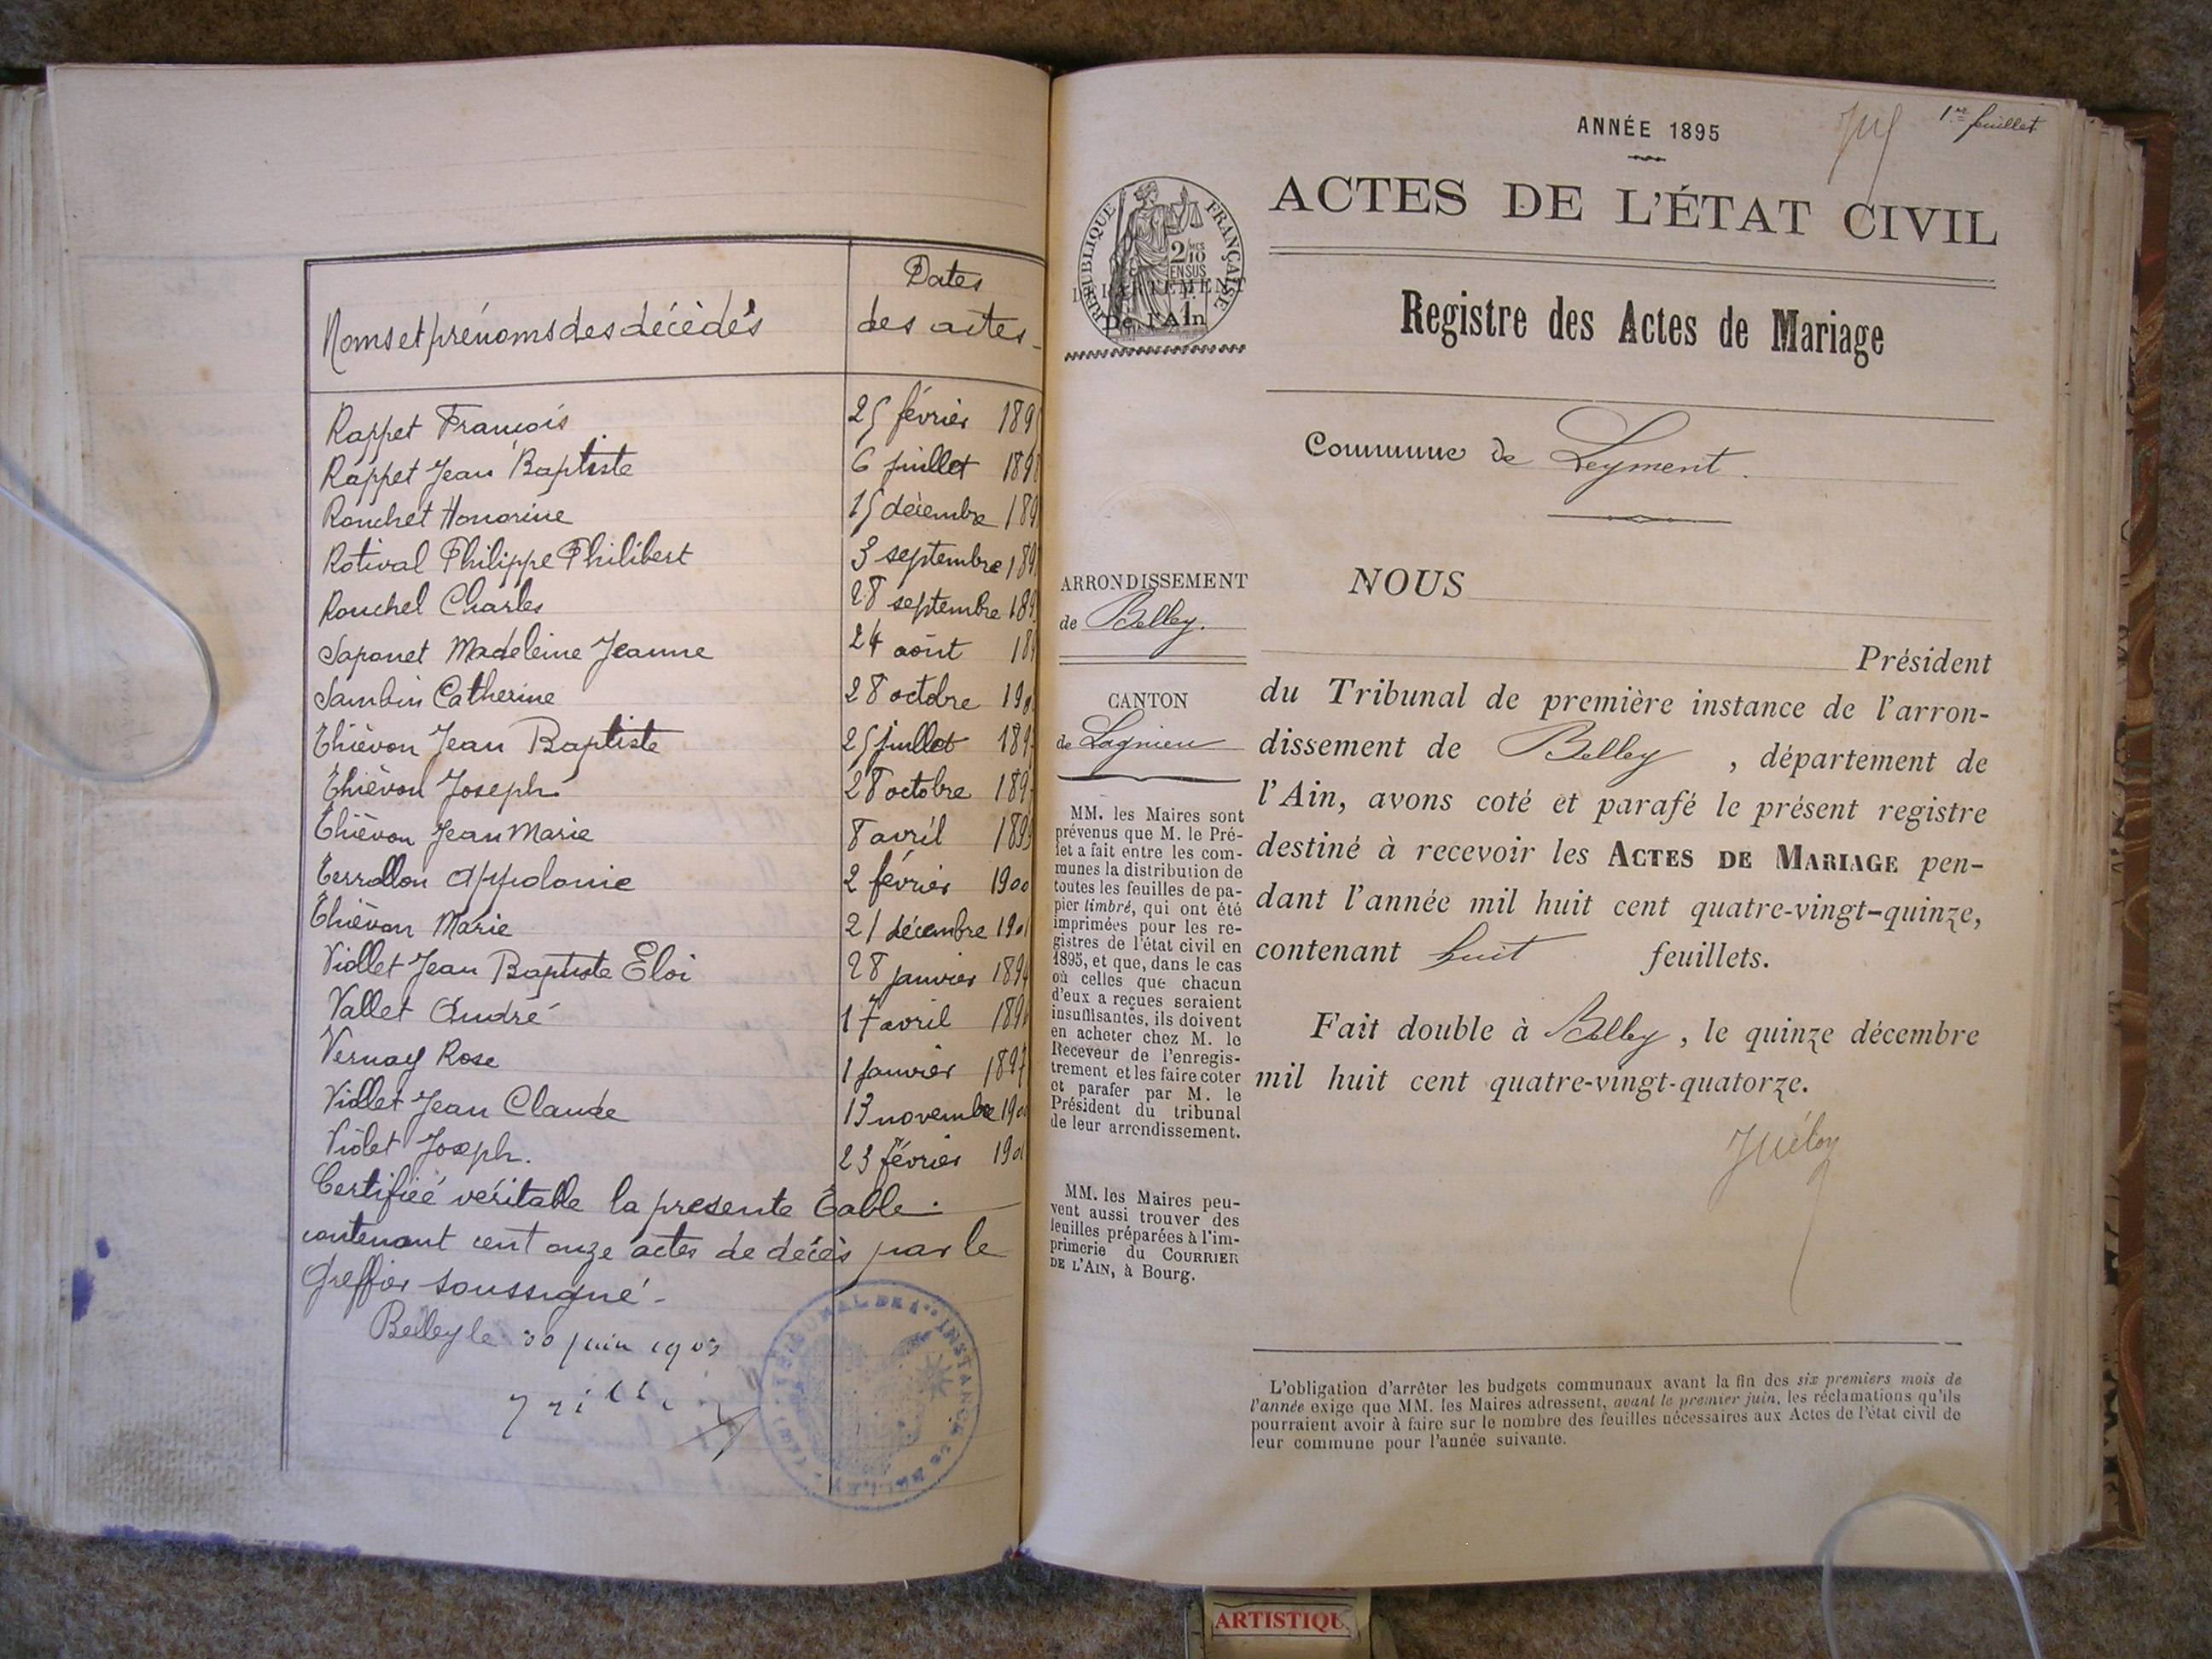 Noms et prénoms des décèdés
Dates
des actes
Rappet François 25 février 189
Rappet Jean Baptiste 6 juillet 189
Ronchet Honorine 15 décembre 189
Rotival Philippe Philibert 3 septembre 189
Rouchel Charles 28 septembre 189
Saponet Madeleine Jeanne 24 août 18
Sambin Catherine 28 octobre 190
Thièvon Jean Baptiste 25 juillet 189
Thièvon Joseph 28 octobre 189
Thièvon Jean Marie 8 avril 1899
Terrollon Appolonie 2 février 1900
Thièvon Marie 21 décembre 1901
Viollet Jean Baptiste Eloi 28 janvier 189
Vallet André 17 avril 189
Vernay Rose 1 janvier 1897
Viollet Jean Claude 13 novembre 190
Violet Joseph. 23 février 190
Certifiéé véritable la presente Table.
contenant cent onze actes de décès par le
Greffier soussigné -
Belley le 30 juin 1903
TRIBUNAL DE 1re INSTANCE DE BELLEY
1er feuillet
ANNÉE 1895
ACTES DE L'ÉTAT CIVIL
RÉPUBLIQUE FRANÇAISE
2/10
EN SUS
DÉPARTEMENT
De l'Ain
Registre des Actes de Mariage
Commune de Leyment.
ARRONDISSEMENT
de Belley.
CANTON
de Lagnieu
MM. les Maires sont
prévenus que M. le Pré-
fet a fait entre les com-
munes la distribution de
toutes les feuilles de pa-
pier timbré, qui ont été
imprimées pour les re-
gistres de l'état civil en
1895, et que, dans le cas
où celles que chacun
d'eux a reçues seraient
insuffisantes, ils doivent
en acheter chez M. le
Receveur de l'enregis-
trement et les faire coter
et parafer par M. le
Président du tribunal
de leur arrondissement.
MM. les Maires peu-
vent aussi trouver des
feuilles préparées à l'im-
primerie du COURRIER
DE L'AIN, à Bourg.
NOUS
Président
du Tribunal de première instance de l'arron-
dissement de Belley , département de
l'Ain, avons coté et parafé le présent registre
destiné à recevoir les ACTES DE MARIAGE pen-
dant l'année mil huit cent quatre-vingt-quinze,
contenant huit feuillets.
Fait double à Belley, le quinze décembre
mil huit cent quatre-vingt-quatorze.
L'obligation d'arrêter les budgets communaux avant la fin des six premiers mois de
l'année exige que MM. les Maires adressent, avant le premier juin, les réclamations qu'ils
pourraient avoir à faire sur le nombre des feuilles nécessaires aux Actes de l'état civil de
leur commune pour l'année suivante.
ARTISTIQU